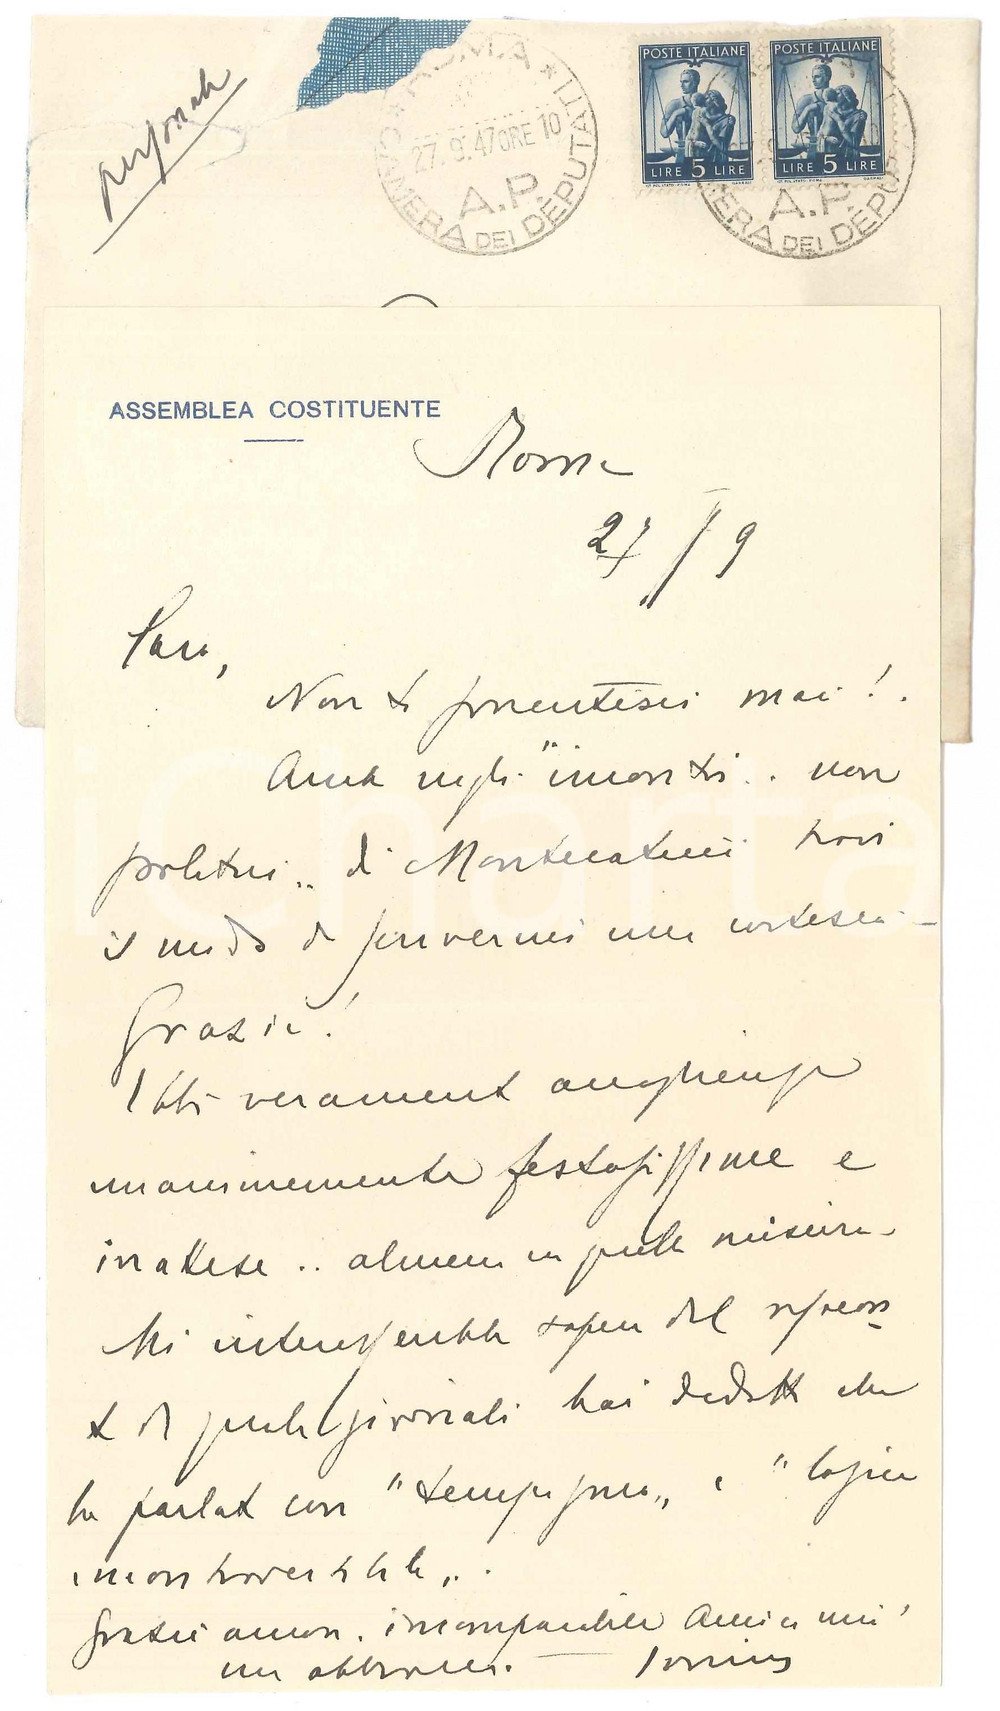 personale
ROMA A.P.
CAMERA DEI DEPUTATI
27.9.47 ORE 10
A.P.
CAMERA DEI DEPUTATI
POSTE ITALIANE
LIRE 5 LIRE
POSTE ITALIANE
LIRE 5 LIRE
ASSEMBLEA COSTITUENTE
Roma
27 / 9
Caro,
Non ti smentisci mai!
Anche negli "incontri .. non
politici" di Montecatini trovi
il modo di scrivermi una cortesia -
Grazie!
Ebbi veramente accoglienze
unanimemente festosissime e
inattese .. almeno in quella misura.
Mi interesserebbe sapere del
e di quale giornali hai dedotto che
ho parlato con " " e " logica
incontrovertibile".
Grazie ancora, incomparabile Amico mio!
un abbraccio. —
iCharta